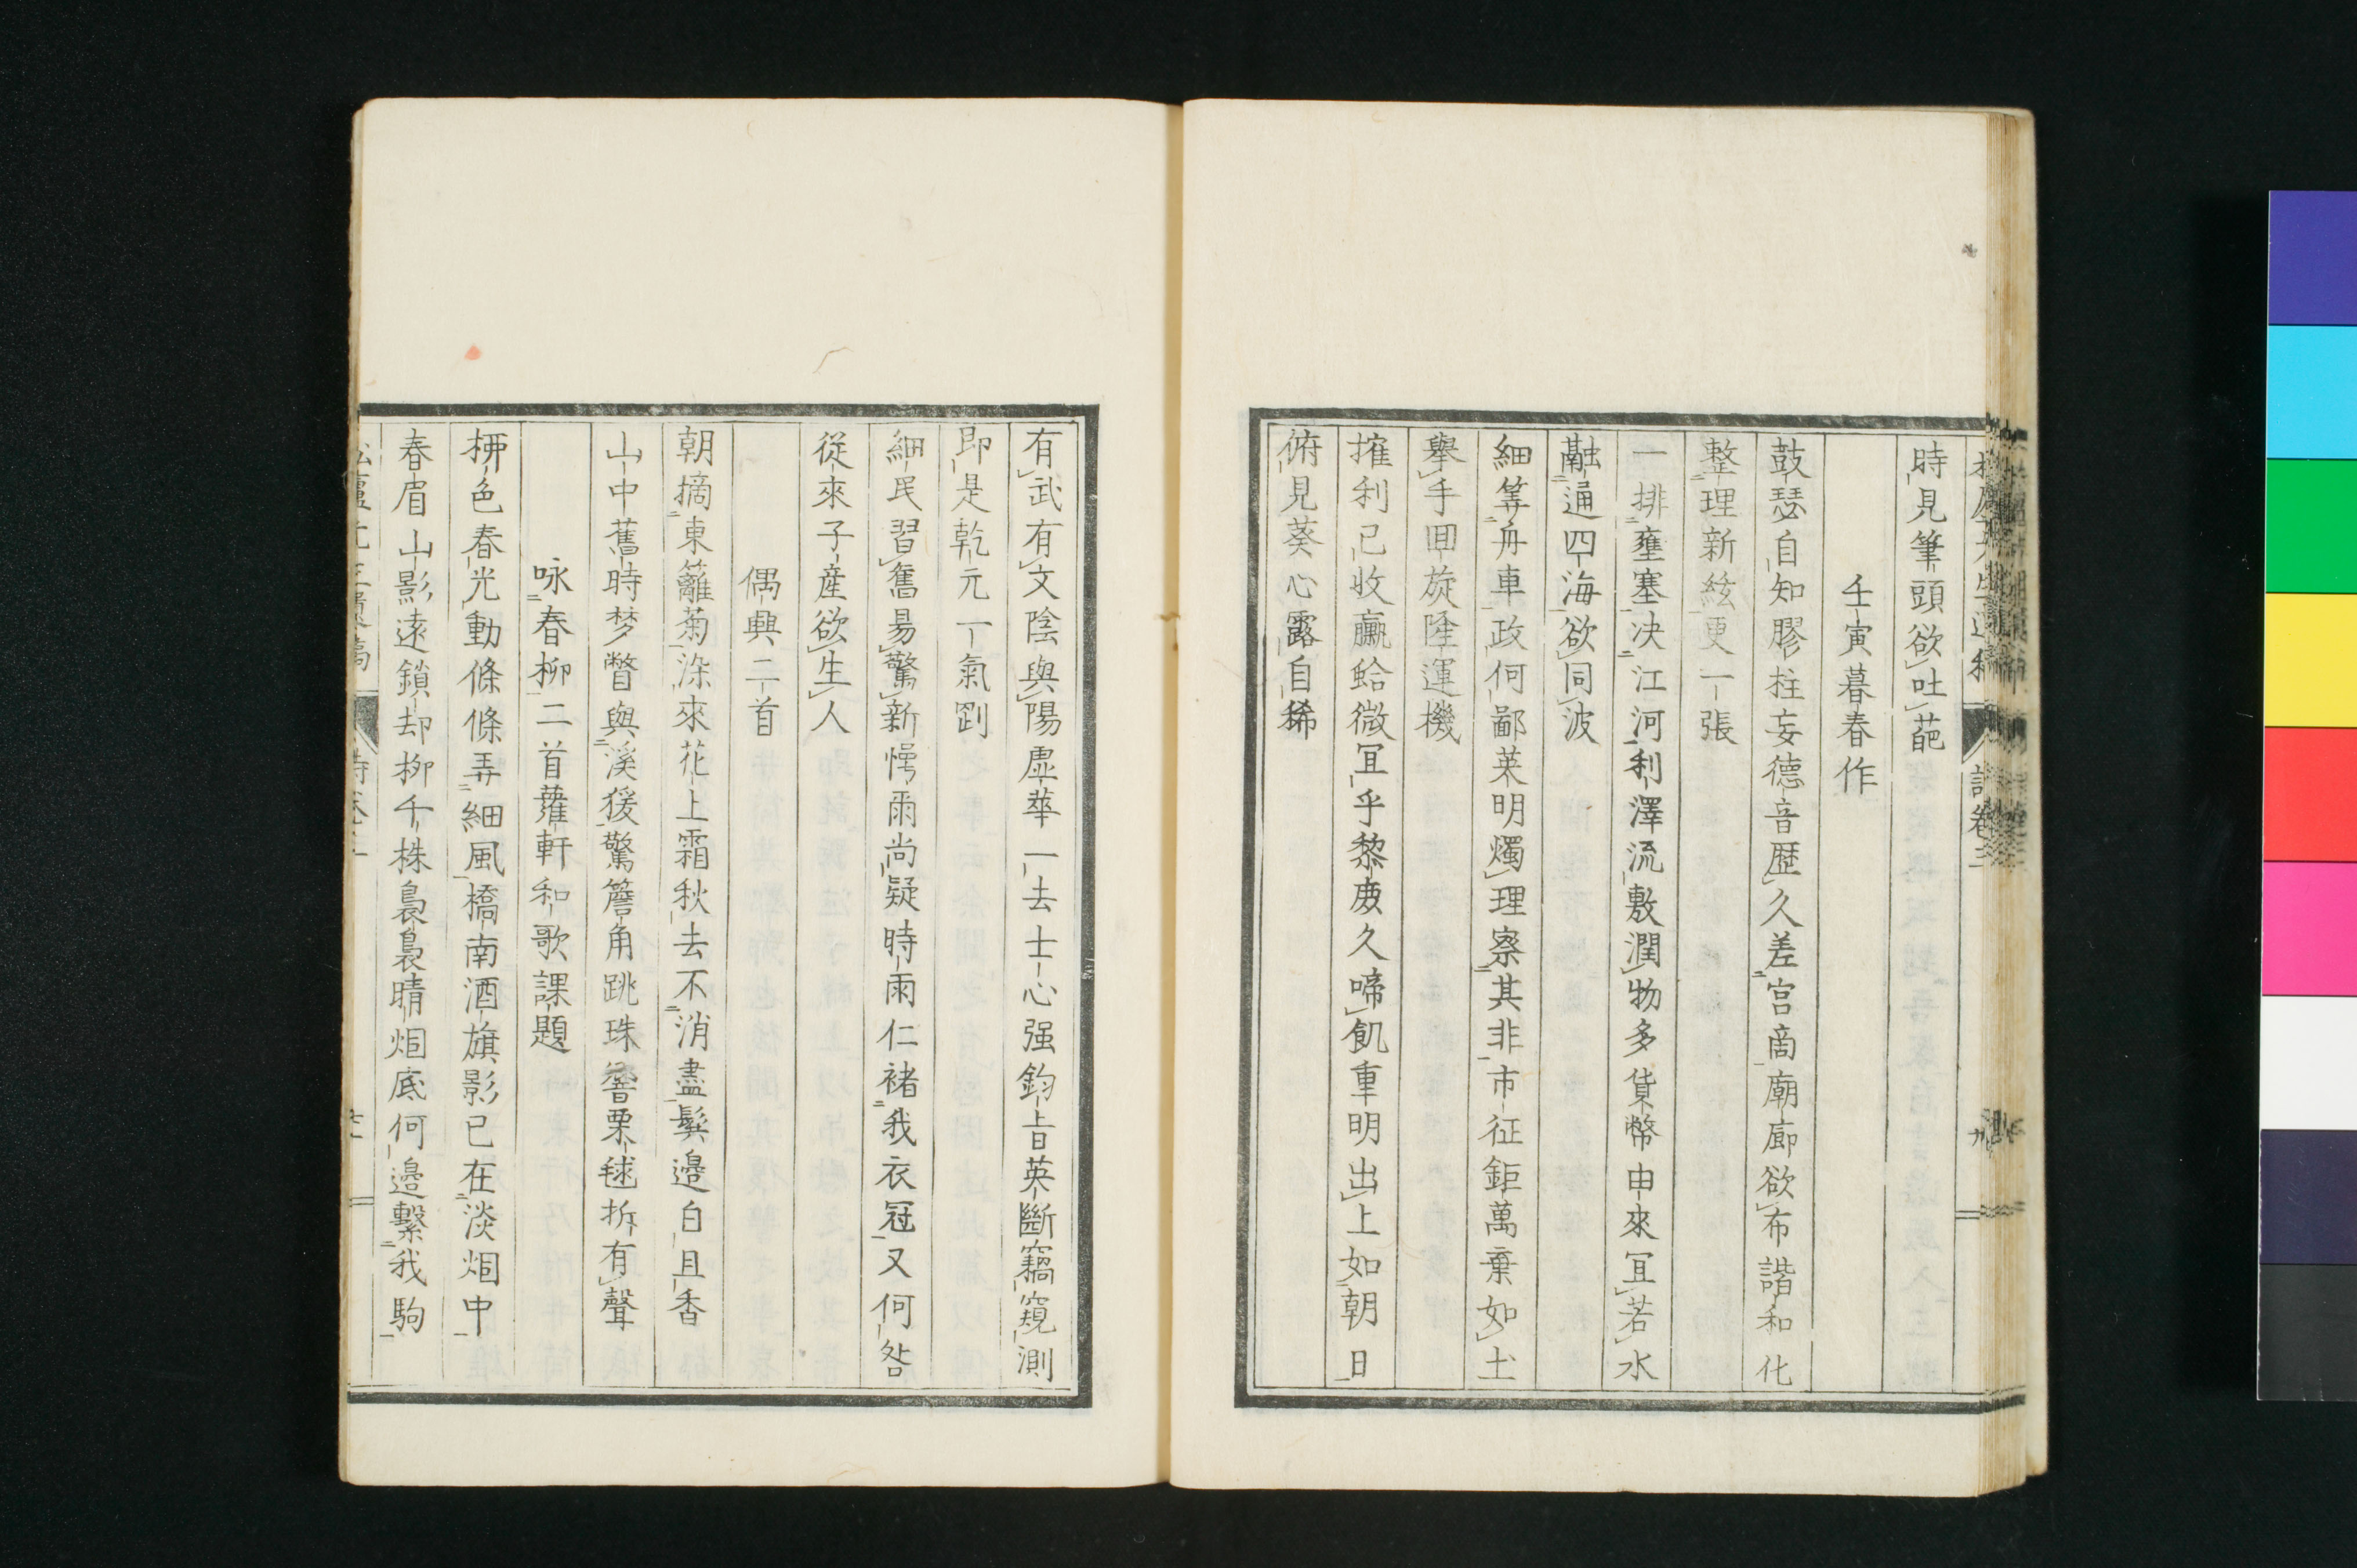 時見筆頭欲吐葩
壬寅暮春作
鼓瑟自知膠柱妄德音歷久差宫商廟廊欲布諧和化
整理新絃更一張
一排壅塞決江河利澤流敷潤物多貨幣由來冝若水
融通四海欲同波
細筭舟車政何鄙萊明燭理察其非市征鉅萬棄如土
舉手回旋隆運機
搉利已收贏蛤微冝乎黎庻久啼飢重明出上如朝日
俯見葵心露自稀
有武有文陰與陽虛華一去士心强鈞旨英斷竊窺測
即是乾元一氣剛
細民習舊易驚新愕爾尚疑時雨仁褚我衣冠又何咎
從來子産欲生人
偶興二首
朝摘東籬菊滐來花上霜秋去不消盡鬂邉白且香
山中舊時梦瞥與溪猨驚簷角跳珠響栗毬拆有聲
咏春柳二首蘿軒和歌課題
栁色春光動條條弄細風橋南酒旗影已在淡烟中
春眉山影遠鎖却栁千株裊裊晴烟底何邉繫我駒
詩卷三